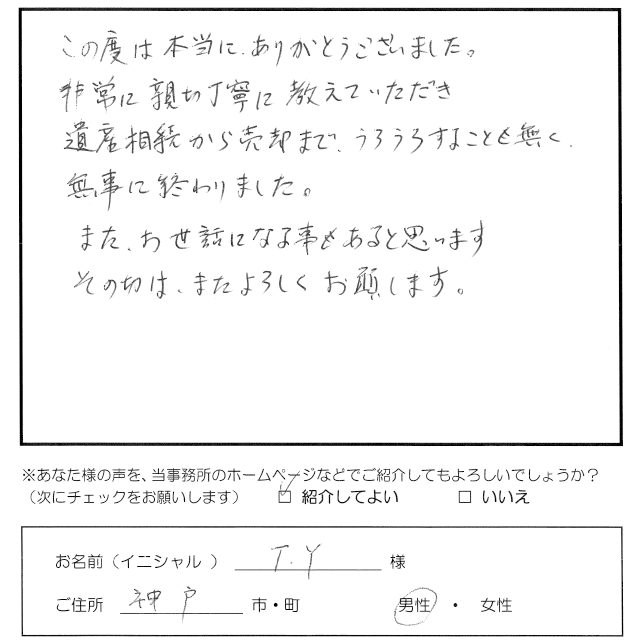 この度は本当に、ありがとうございました。
非常に親切丁寧に教えていただき
遺産相続から売却まで、うろうろすることも無く、
無事に終わりました。
また、お世話になる事もあると思います
その切は、またよろしくお願します。
※あなた様の声を、当事務所のホームページなどでご紹介してもよろしいでしょうか？
（次にチェックをお願いします） ☑ 紹介してよい □ いいえ
お名前（イニシャル ） T.Y 様
ご住所 神戸 市・町 男性 ・ 女性